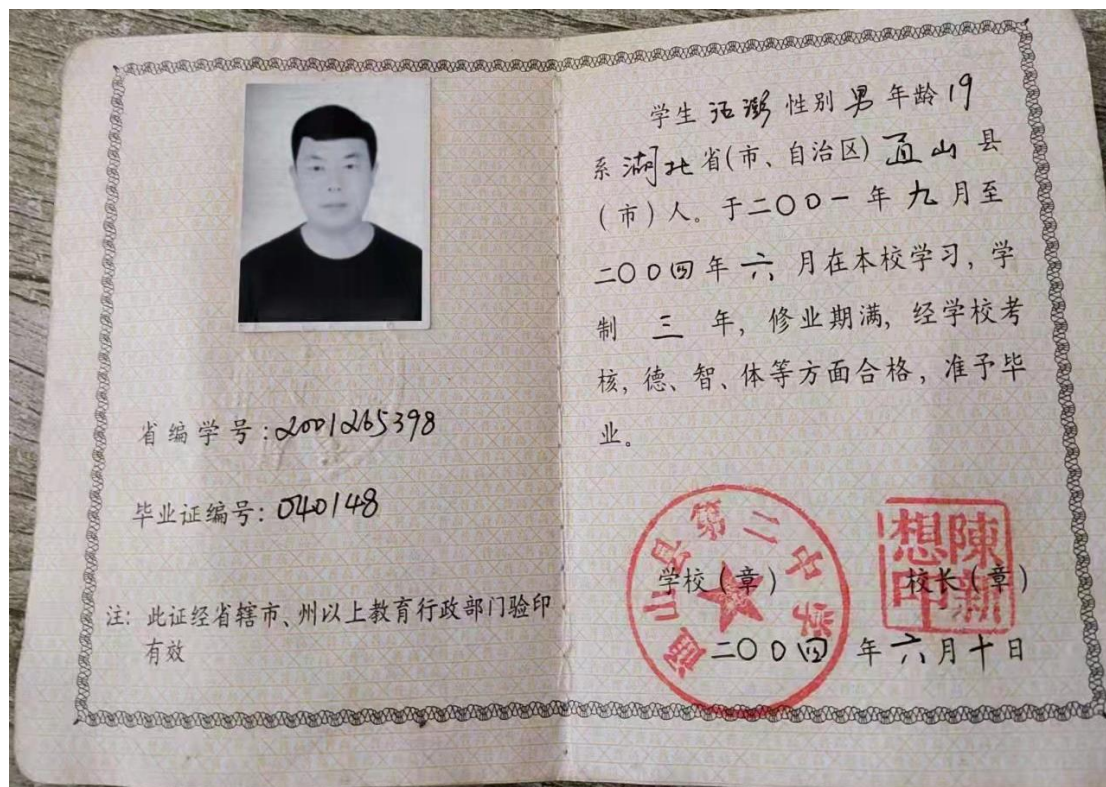 省编学号:2001265398
毕业证编号:040148
注: 此证经省辖市、州以上教育行政部门验印
有效
学生 性别 男 年龄 19
系 湖北 省(市、自治区) 通山 县
(市)人。于二〇〇一 年 九 月至
二〇〇四年 六 月在本校学习, 学
制 三 年, 修业期满, 经学校考
核, 德、智、体等方面合格, 准予毕
业。
通山县第二中学
陳新想印
学校(章) 校长(章)
二〇〇四 年六月十日